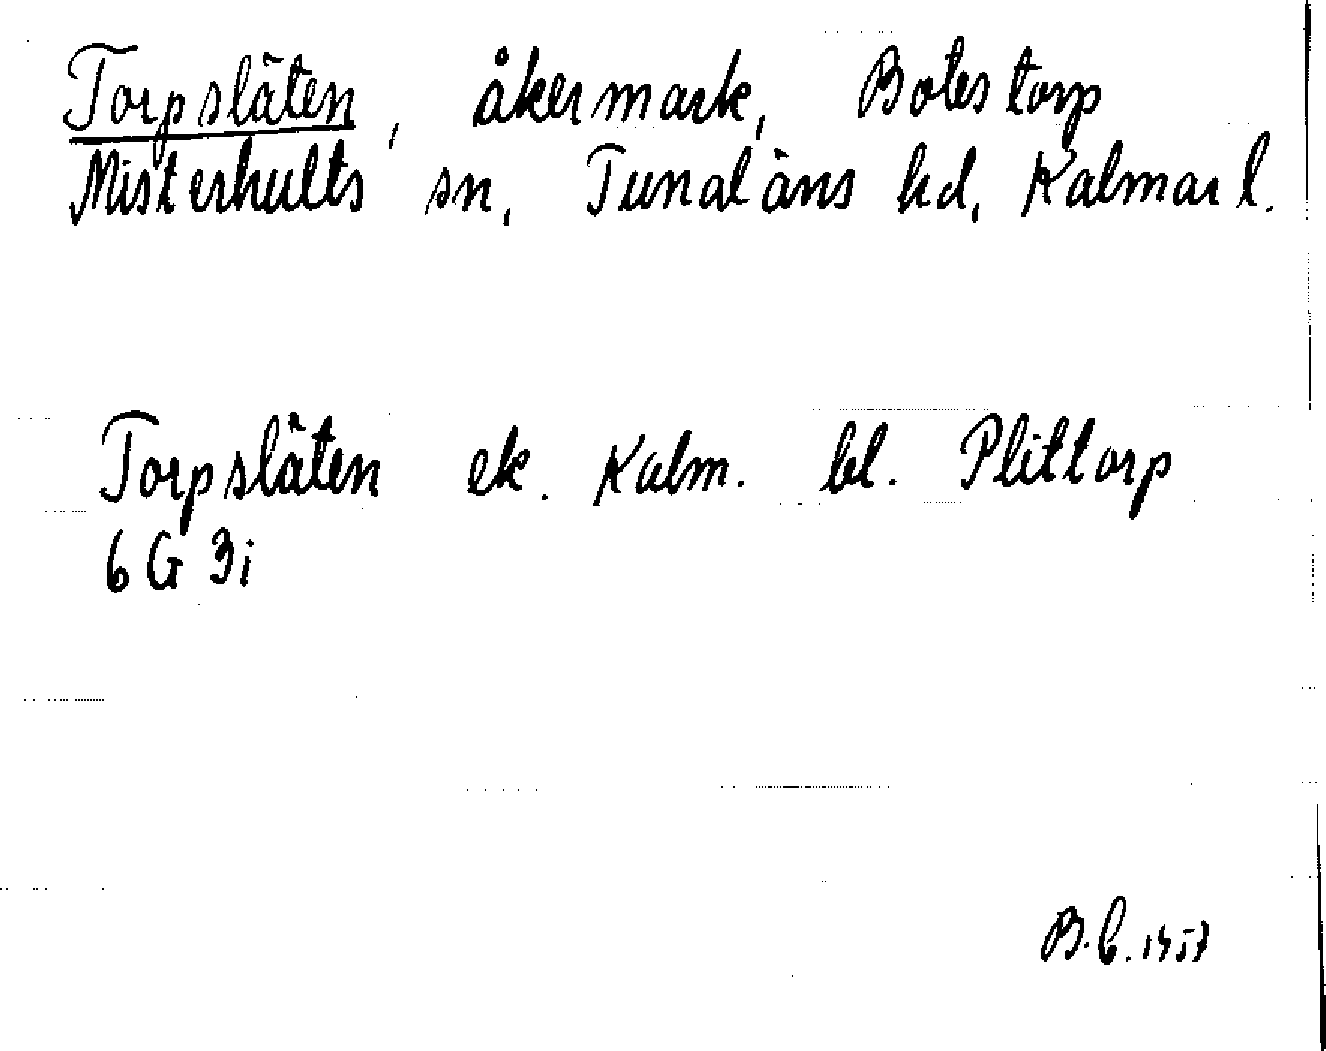 Torpsläten, åkermark, Botestorp
Misterhults sn, Tunaläns hd, Kalmar l.
Torpsläten ek. Kalm. bl. Plittorp
6 G 3i
B.C. 1957